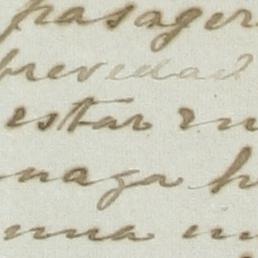 pasager
brevedad
estar in
naga h
nna in